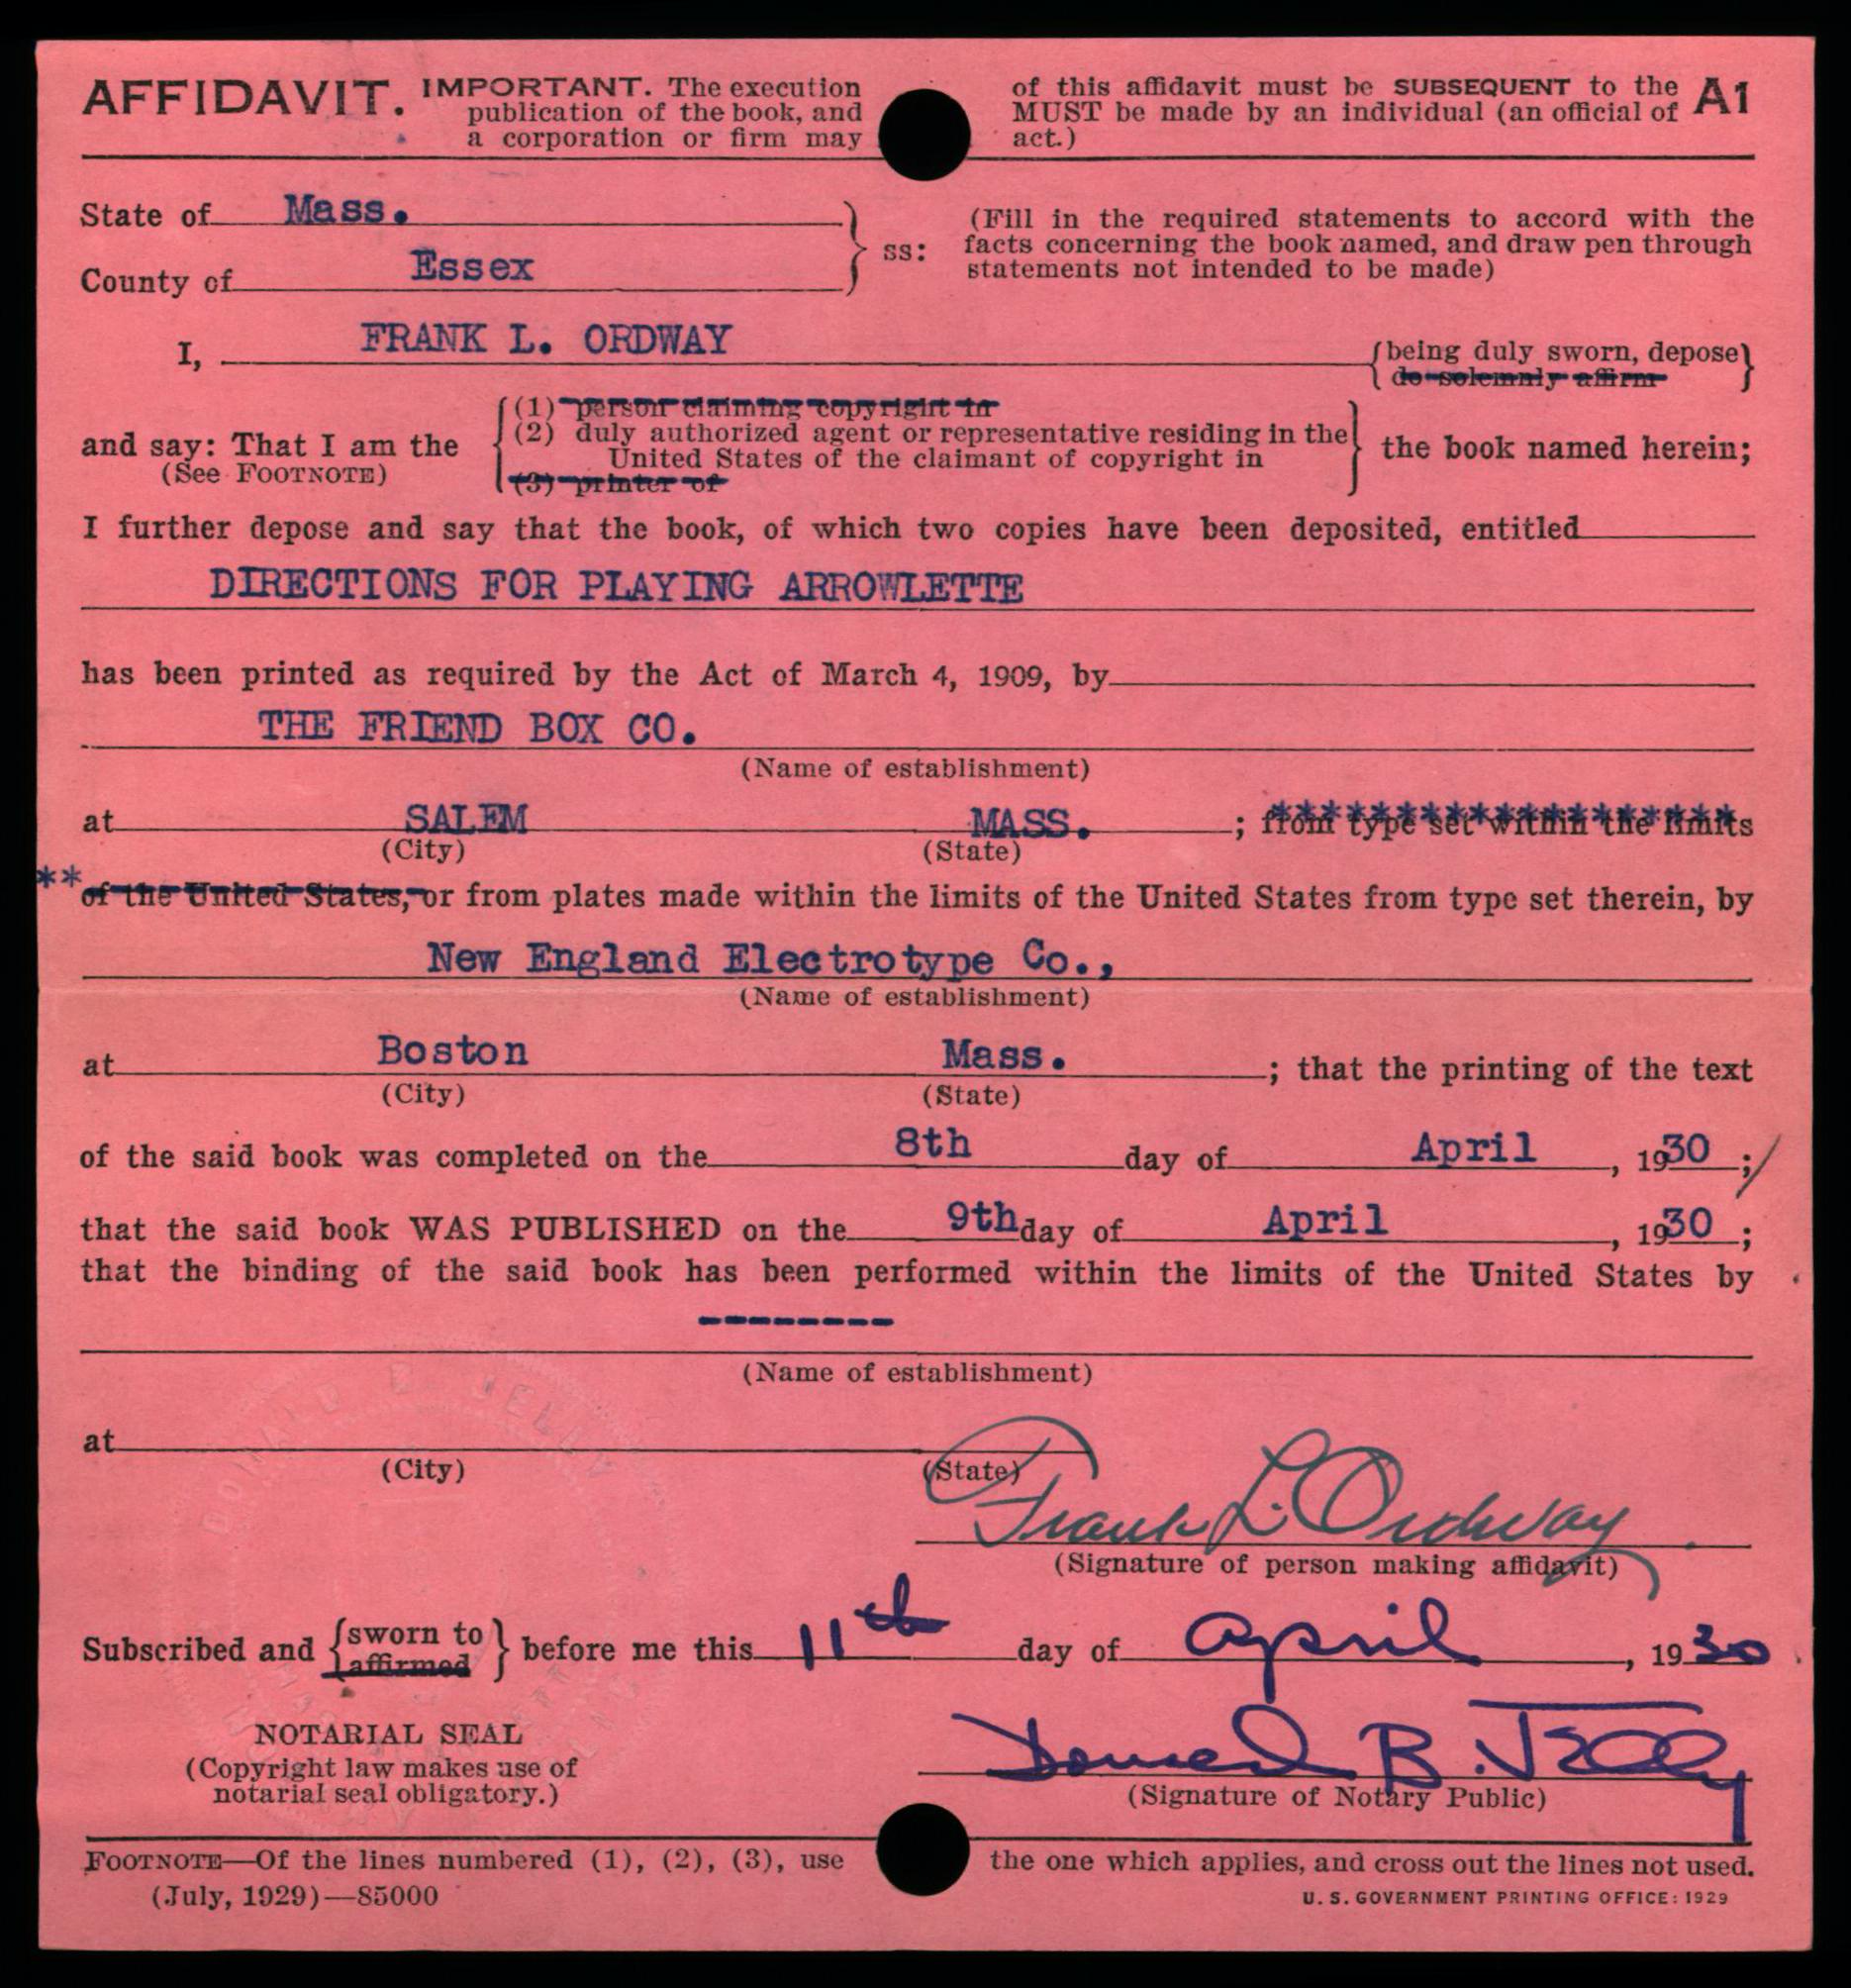 AFFIDAVIT. IMPORTANT. The execution of this affidavit must be SUBSEQUENT to the A1
publication of the book, and MUST be made by an individual (an official of
a corporation or firm may act.)
State of Mass.
County of Essex
ss:
(Fill in the required statements to accord with the
facts concerning the book named, and draw pen through
statements not intended to be made)
I, FRANK L. ORDWAY {being duly sworn, depose}
do solemnly affirm
and say: That I am the
(See FOOTNOTE)
(1) person claiming copyright in
(2) duly authorized agent or representative residing in the
United States of the claimant of copyright in
(3) printer of
the book named herein;
I further depose and say that the book, of which two copies have been deposited, entitled
DIRECTIONS FOR PLAYING ARROWLETTE
has been printed as required by the Act of March 4, 1909, by
THE FRIEND BOX CO.
(Name of establishment)
at SALEM MASS. ; from type set within the limits
(City) (State)
** of the United States, or from plates made within the limits of the United States from type set therein, by
New England Electrotype Co.,
(Name of establishment)
at Boston Mass. ; that the printing of the text
(City) (State)
of the said book was completed on the 8th day of April , 1930 ;
that the said book WAS PUBLISHED on the 9th day of April , 1930 ;
that the binding of the said book has been performed within the limits of the United States by
--------
(Name of establishment)
at
(City) (State)
Frank L. Ordway
(Signature of person making affidavit)
Subscribed and {sworn to} before me this 11th day of April , 1930
affirmed
NOTARIAL SEAL
(Copyright law makes use of
notarial seal obligatory.)
Donald B. Jelly
(Signature of Notary Public)
FOOTNOTE—Of the lines numbered (1), (2), (3), use the one which applies, and cross out the lines not used.
(July, 1929)—85000
U. S. GOVERNMENT PRINTING OFFICE: 1929
DONALD B. JELLY